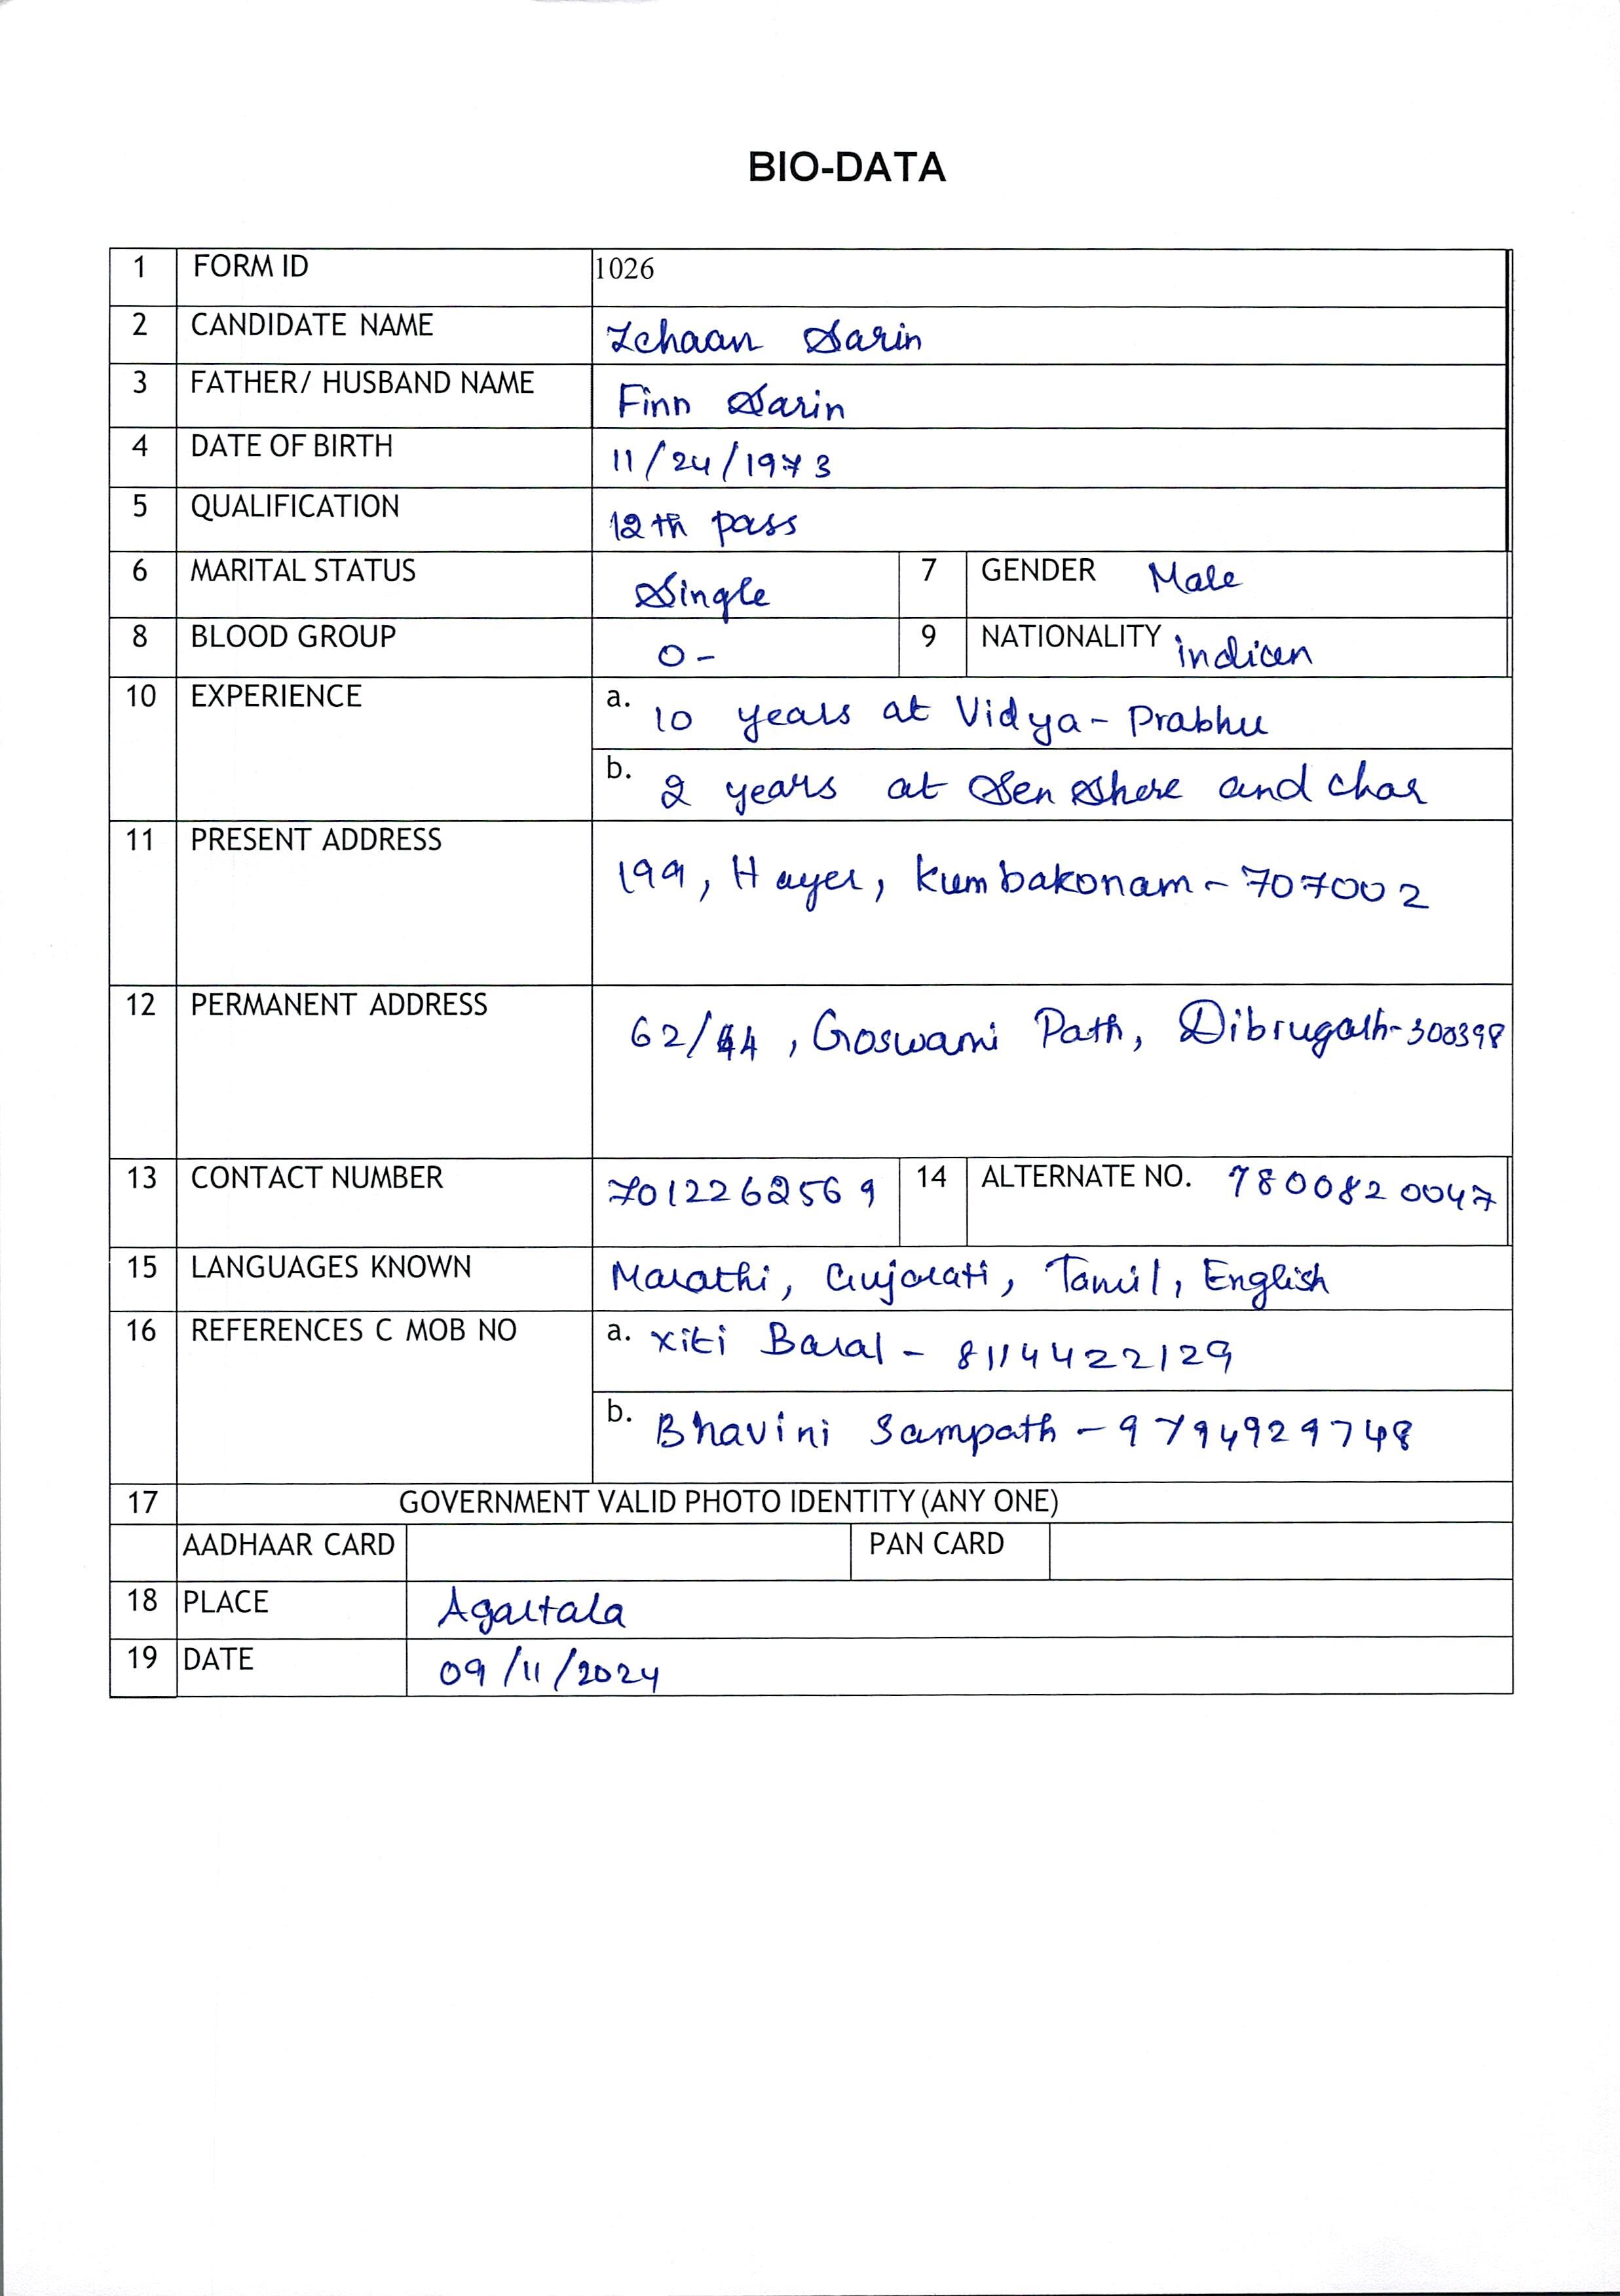 BIO-DATA
1 FORM ID 1026
2 CANDIDATE NAME Zehaan Sarin
3 FATHER/ HUSBAND NAME Finn Sarin
4 DATE OF BIRTH 11/24/1973
5 QUALIFICATION 12th pass
6 MARITAL STATUS Single 7 GENDER Male
8 BLOOD GROUP O- 9 NATIONALITY indian
10 EXPERIENCE a. 10 years at Vidya-Prabhu
b. 2 years at Sen Shere and char
11 PRESENT ADDRESS 199, Hayer, Kumbakonam - 707002
12 PERMANENT ADDRESS 62/44, Goswami Path, Dibrugarh-300398
13 CONTACT NUMBER 7012262569 14 ALTERNATE NO. 7800820047
15 LANGUAGES KNOWN Marathi, Gujarati, Tamil, English
16 REFERENCES C MOB NO a. Xiti Baral - 8114422129
b. Bhavini Sampath - 9794929748
17 GOVERNMENT VALID PHOTO IDENTITY (ANY ONE)
AADHAAR CARD PAN CARD
18 PLACE Agartala
19 DATE 09/11/2024